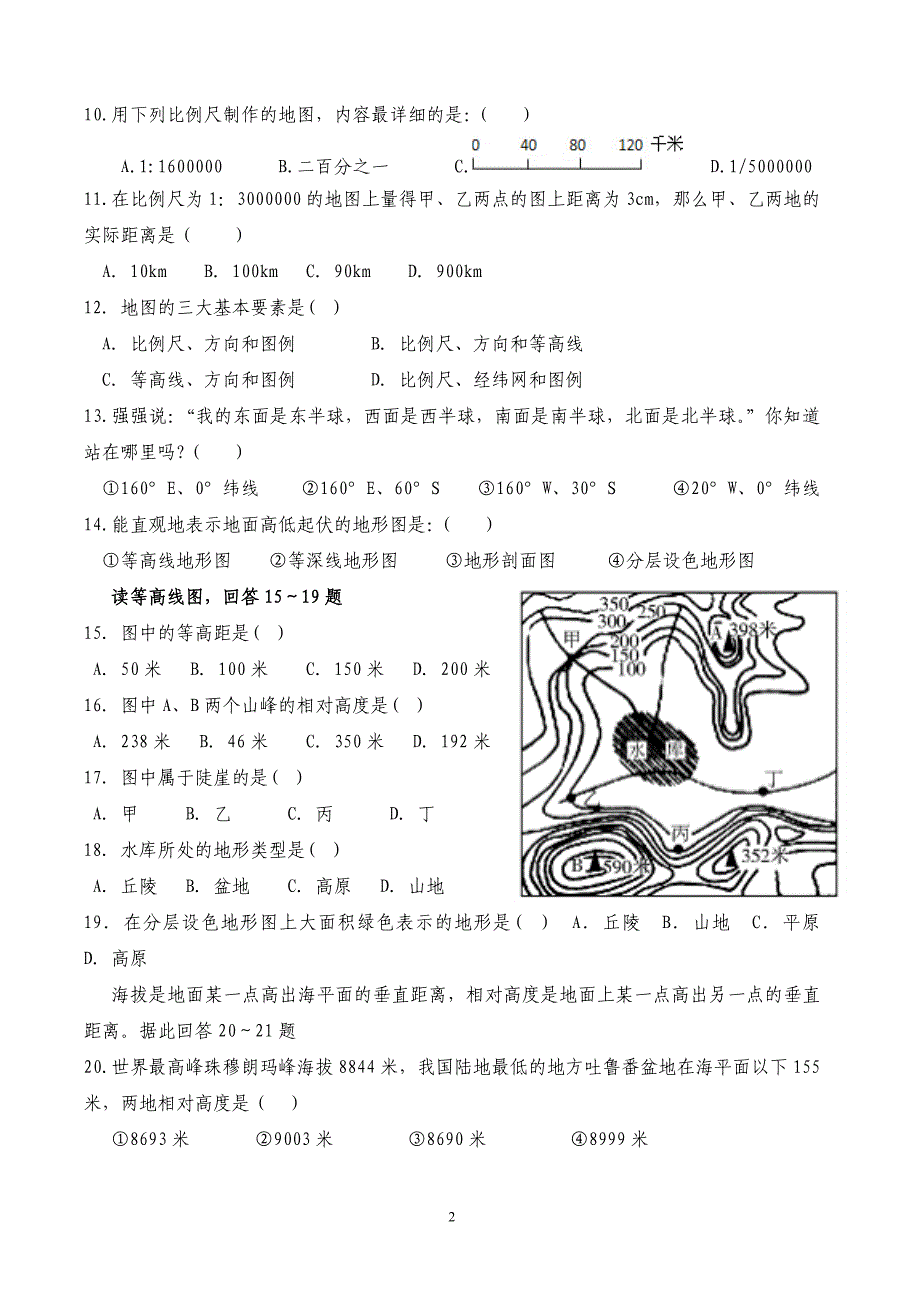 10.用下列比例尺制作的地图，内容最详细的是：(　　)
0 40 80 120 千米
A.1:1600000 B.二百分之一 C. D.1/5000000
11.在比例尺为 1：3000000 的地图上量得甲、乙两点的图上距离为 3cm，那么甲、乙两地的
实际距离是（　　）
A. 10km B. 100km C. 90km D. 900km
12. 地图的三大基本要素是(　)
A. 比例尺、方向和图例 B. 比例尺、方向和等高线
C. 等高线、方向和图例 D. 比例尺、经纬网和图例
13.强强说：“我的东面是东半球，西面是西半球，南面是南半球，北面是北半球。”你知道
站在哪里吗？(　　)
①160° E、0° 纬线 ②160° E、60° S ③160° W、30° S ④20° W、0° 纬线
14.能直观地表示地面高低起伏的地形图是：(　　)
①等高线地形图 ②等深线地形图 ③地形剖面图 ④分层设色地形图
读等高线图，回答 15～19 题
15. 图中的等高距是(　)
A. 50 米 B. 100 米 C. 150 米 D. 200 米
16. 图中 A、B 两个山峰的相对高度是(　)
A. 238 米 B. 46 米 C. 350 米 D. 192 米
17. 图中属于陡崖的是(　)
A. 甲 B. 乙 C. 丙 D. 丁
18. 水库所处的地形类型是(　)
A. 丘陵 B. 盆地 C. 高原 D. 山地
350
300
250
200
150
100
甲
A 398米
水 库
丁
乙
丙
B 590米
352米
19. 在分层设色地形图上大面积绿色表示的地形是(　) A. 丘陵 B. 山地 C. 平原
D. 高原
海拔是地面某一点高出海平面的垂直距离，相对高度是地面上某一点高出另一点的垂直
距离。据此回答 20～21 题
20.世界最高峰珠穆朗玛峰海拔 8844 米，我国陆地最低的地方吐鲁番盆地在海平面以下 155
米，两地相对高度是（　　）
①8693 米 ②9003 米 ③8690 米 ④8999 米
2